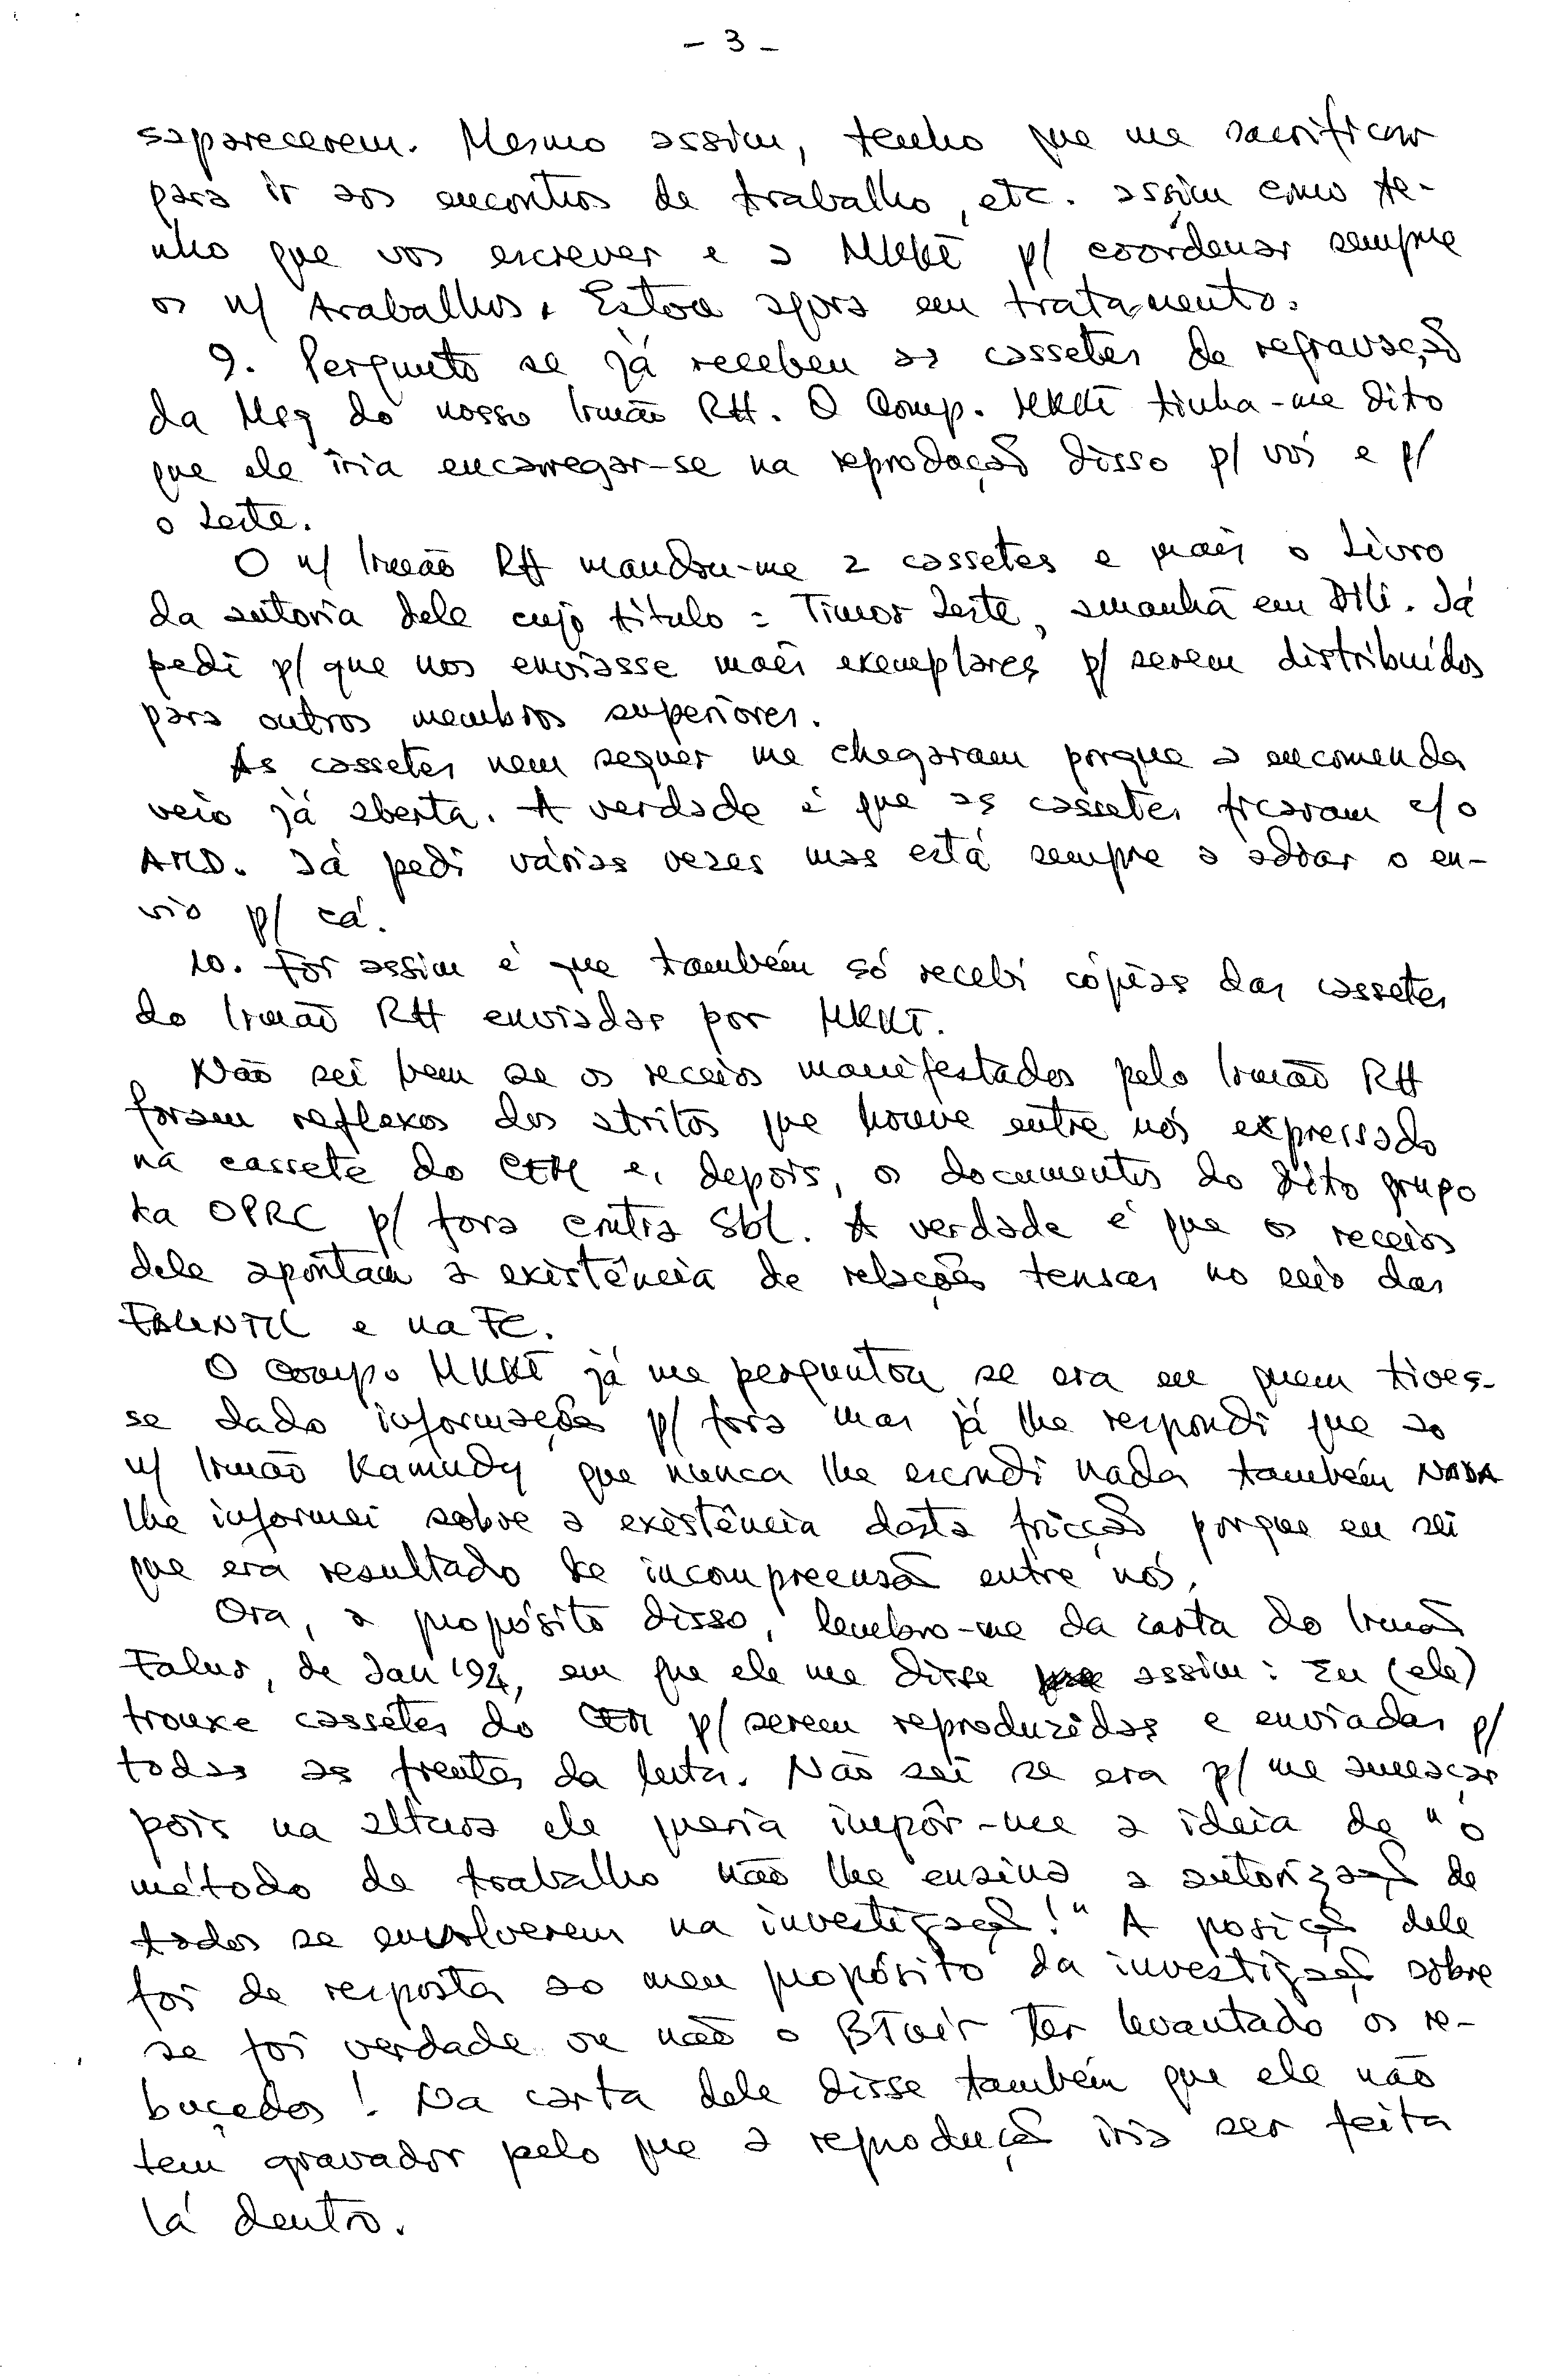 - 3 -
saparecerem. Mesmo assim, tenho que me sacrificar
para ir aos encontros de trabalho, etc. assim como te-
nho que vos escrever e a MKKT p/ coordenar sempre
os n/ trabalhos. Estou agora em tratamento.
9. Pergunto se já recebeu as cassetes de regravação
da Msg do nosso Irmão RH. O Comp. MKKT tinha-me dito
que ele iria encarregar-se na reprodução disso p/ vós e p/
o Leste.
O n/ Irmão RH mandou-me 2 cassetes e mais o Livro
da autoria dele cujo título = Timor Leste, amanhã em Dili. Já
pedi p/ que nos enviasse mais exemplares p/ serem distribuídos
para outros membros superiores.
As cassetes nem sequer me chegaram porque a encomenda
veio já aberta. A verdade é que as cassetes ficaram c/o
AMD. Já pedi várias vezes mas está sempre a adiar o en-
vio p/ cá.
10. Foi assim é que também só recebi cópias das cassetes
do Irmão RH enviadas por MKKT.
Não sei bem se os receios manifestados pelo Irmão RH
foram reflexos dos atritos que houve entre nós expressado
na cassete do CEM e, depois, os documentos do dito grupo
ka OPRC p/ fora contra Sbl. A verdade é que os receios
dele apontam a existência de relações tensas no seio das
FALINTIL e na FC.
O Comp. MKKT já me perguntou se era eu quem tives-
se dado informações p/ fora mas já lhe respondi que ao
n/ Irmão Kamudy que nunca lhe escondi nada também NADA
lhe informei sobre a existência desta fricção porque eu sei
que era resultado de incompreensão entre nós.
Ora, a propósito disso, lembro-me da carta do Irmão
Falur, de Jan '94, em que ele me disse assim: Eu (ele)
trouxe cassetes do CEM p/ serem reproduzidas e enviadas p/
todas as frentes da luta. Não sei se era p/ me ameaçar
pois na altura ele queria impôr-me a ideia de "o
método de trabalho não lhe ensina a autorização de
todos se envolverem na investigação!" A posição dele
foi de resposta ao meu propósito da investigação sobre
se foi verdade ou não o ter levantado os re-
buçados! Na carta dele disse também que ele não
tem gravador pelo que a reprodução iria ser feita
lá dentro.